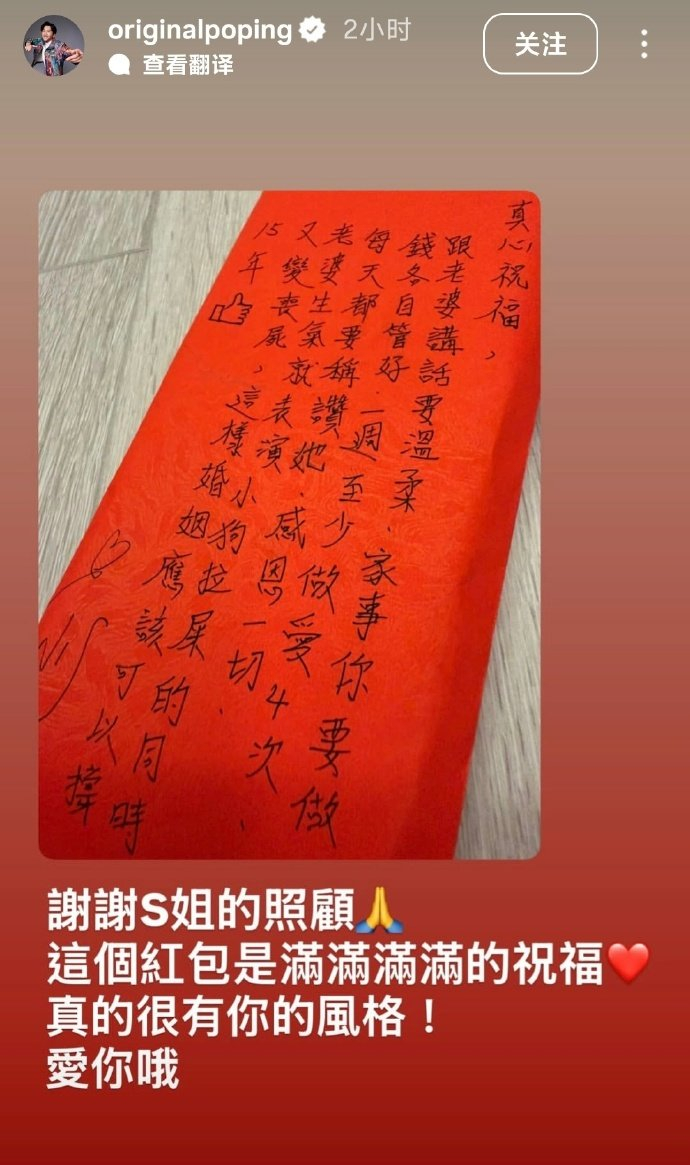 originalpoping 2小时
查看翻译
关注
真心祝福,
跟老婆講話要溫柔.家事你要做
錢各自管好.一週至少做愛4次、
每天都要稱讚她.感恩一切.
老婆生氣就表演小狗拉屎的同時
又變喪屍,這樣婚姻應該可以撐
15年
謝謝S姐的照顧🙏
這個紅包是滿滿滿滿的祝福❤️
真的很有你的風格！
愛你哦